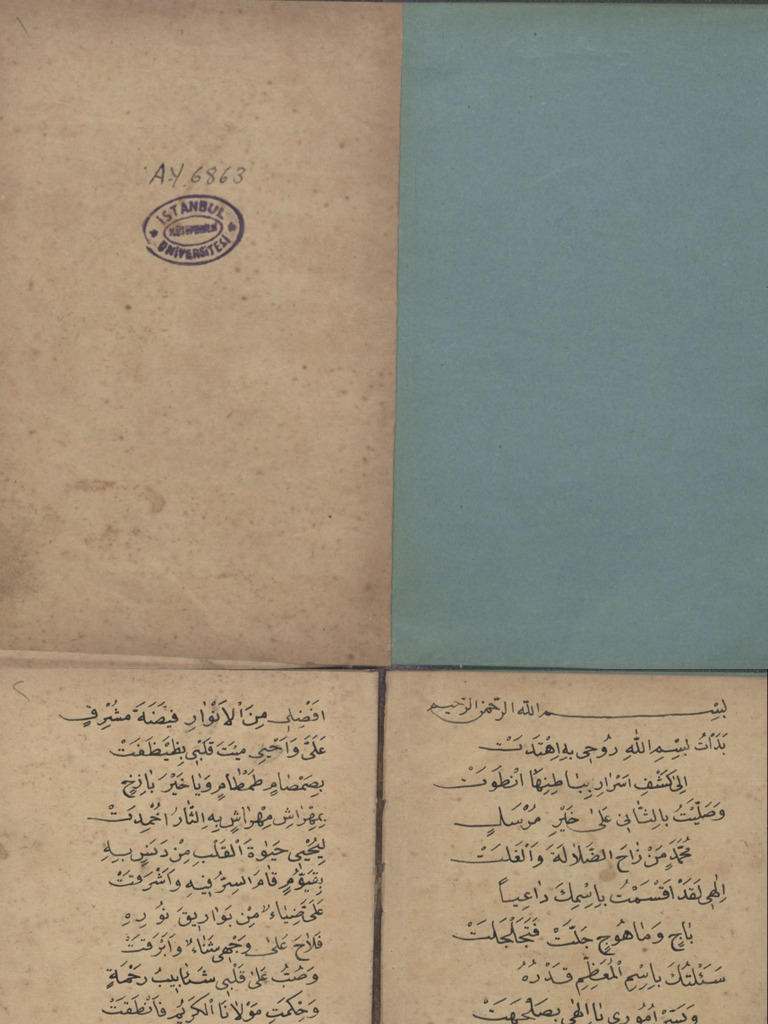 AY 6863
İSTANBUL
KÜTÜPHANESİ
ÜNİVERSİTESİ
بِسْمِ اللهِ الرَّحْمٰنِ الرَّحِيمِ
بَدَاْتُ بِبِسْمِ اللهِ رُوحِى بِهِ اهْتَدَتْ
اِلىٰ كَشْفِ اَسْرَارٍ بِبَاطِنِهَا انْطَوَتْ
وَصَلَّيْتُ بِالثَّانِى عَلىٰ خَيْرِ مُرْسَلٍ
مُحَمَّدٍ مَنْ زَاحَ الضَّلَالَةَ وَالْغَلَتْ
اِلٰهِى لَقَدْ اَقْسَمْتُ بِاسْمِكَ دَاعِياً
بِاٰجٍ وَمَاهُوجٍ جَلَّتْ فَتَجَلْجَلَتْ
سَئَلْتُكَ بِاسْمِ الْمُعَظَّمِ قَدْرُهُ
وَيَسِّرْ اُمُورِى يَا اِلٰهِى بِصَلْمَهَتْ
اَفِضْلِى مِنَ الْاَنْوَارِ فَيْضَةَ مُشْرِقٍ
عَلَىَّ وَاَحْيِى مَيْتَ قَلْبِى بِطَيْطَغَتْ
بِصَمْصَامٍ طَمْطَامٍ وَيَا خَيْرَ بَازِخٍ
بِمِهْرَاشٍ مِهْرَاشٍ بِهِ النَّارُ اُخْمِدَتْ
لِيُحْيِى حَيٰوةَ الْقَلْبِ مِنْ دَنَسٍ بِهِ
بِقَيُّومٍ قَامَ السِّرُّ فِيهِ وَاَشْرَقَتْ
عَلَىَّ ضِيَاءٌ مِنْ بَوَارِيقِ نُورِهِ
فَلَاحَ عَلىٰ وَجْهِى سَنَاءٌ وَاَبْرَقَتْ
وَصُبَّ عَلىٰ قَلْبِى شَاٰبِيبُ رَحْمَةٍ
وَحِكْمَتِ مَوْلَانَا الْكَرِيمِ فَاَنْطَقَتْ